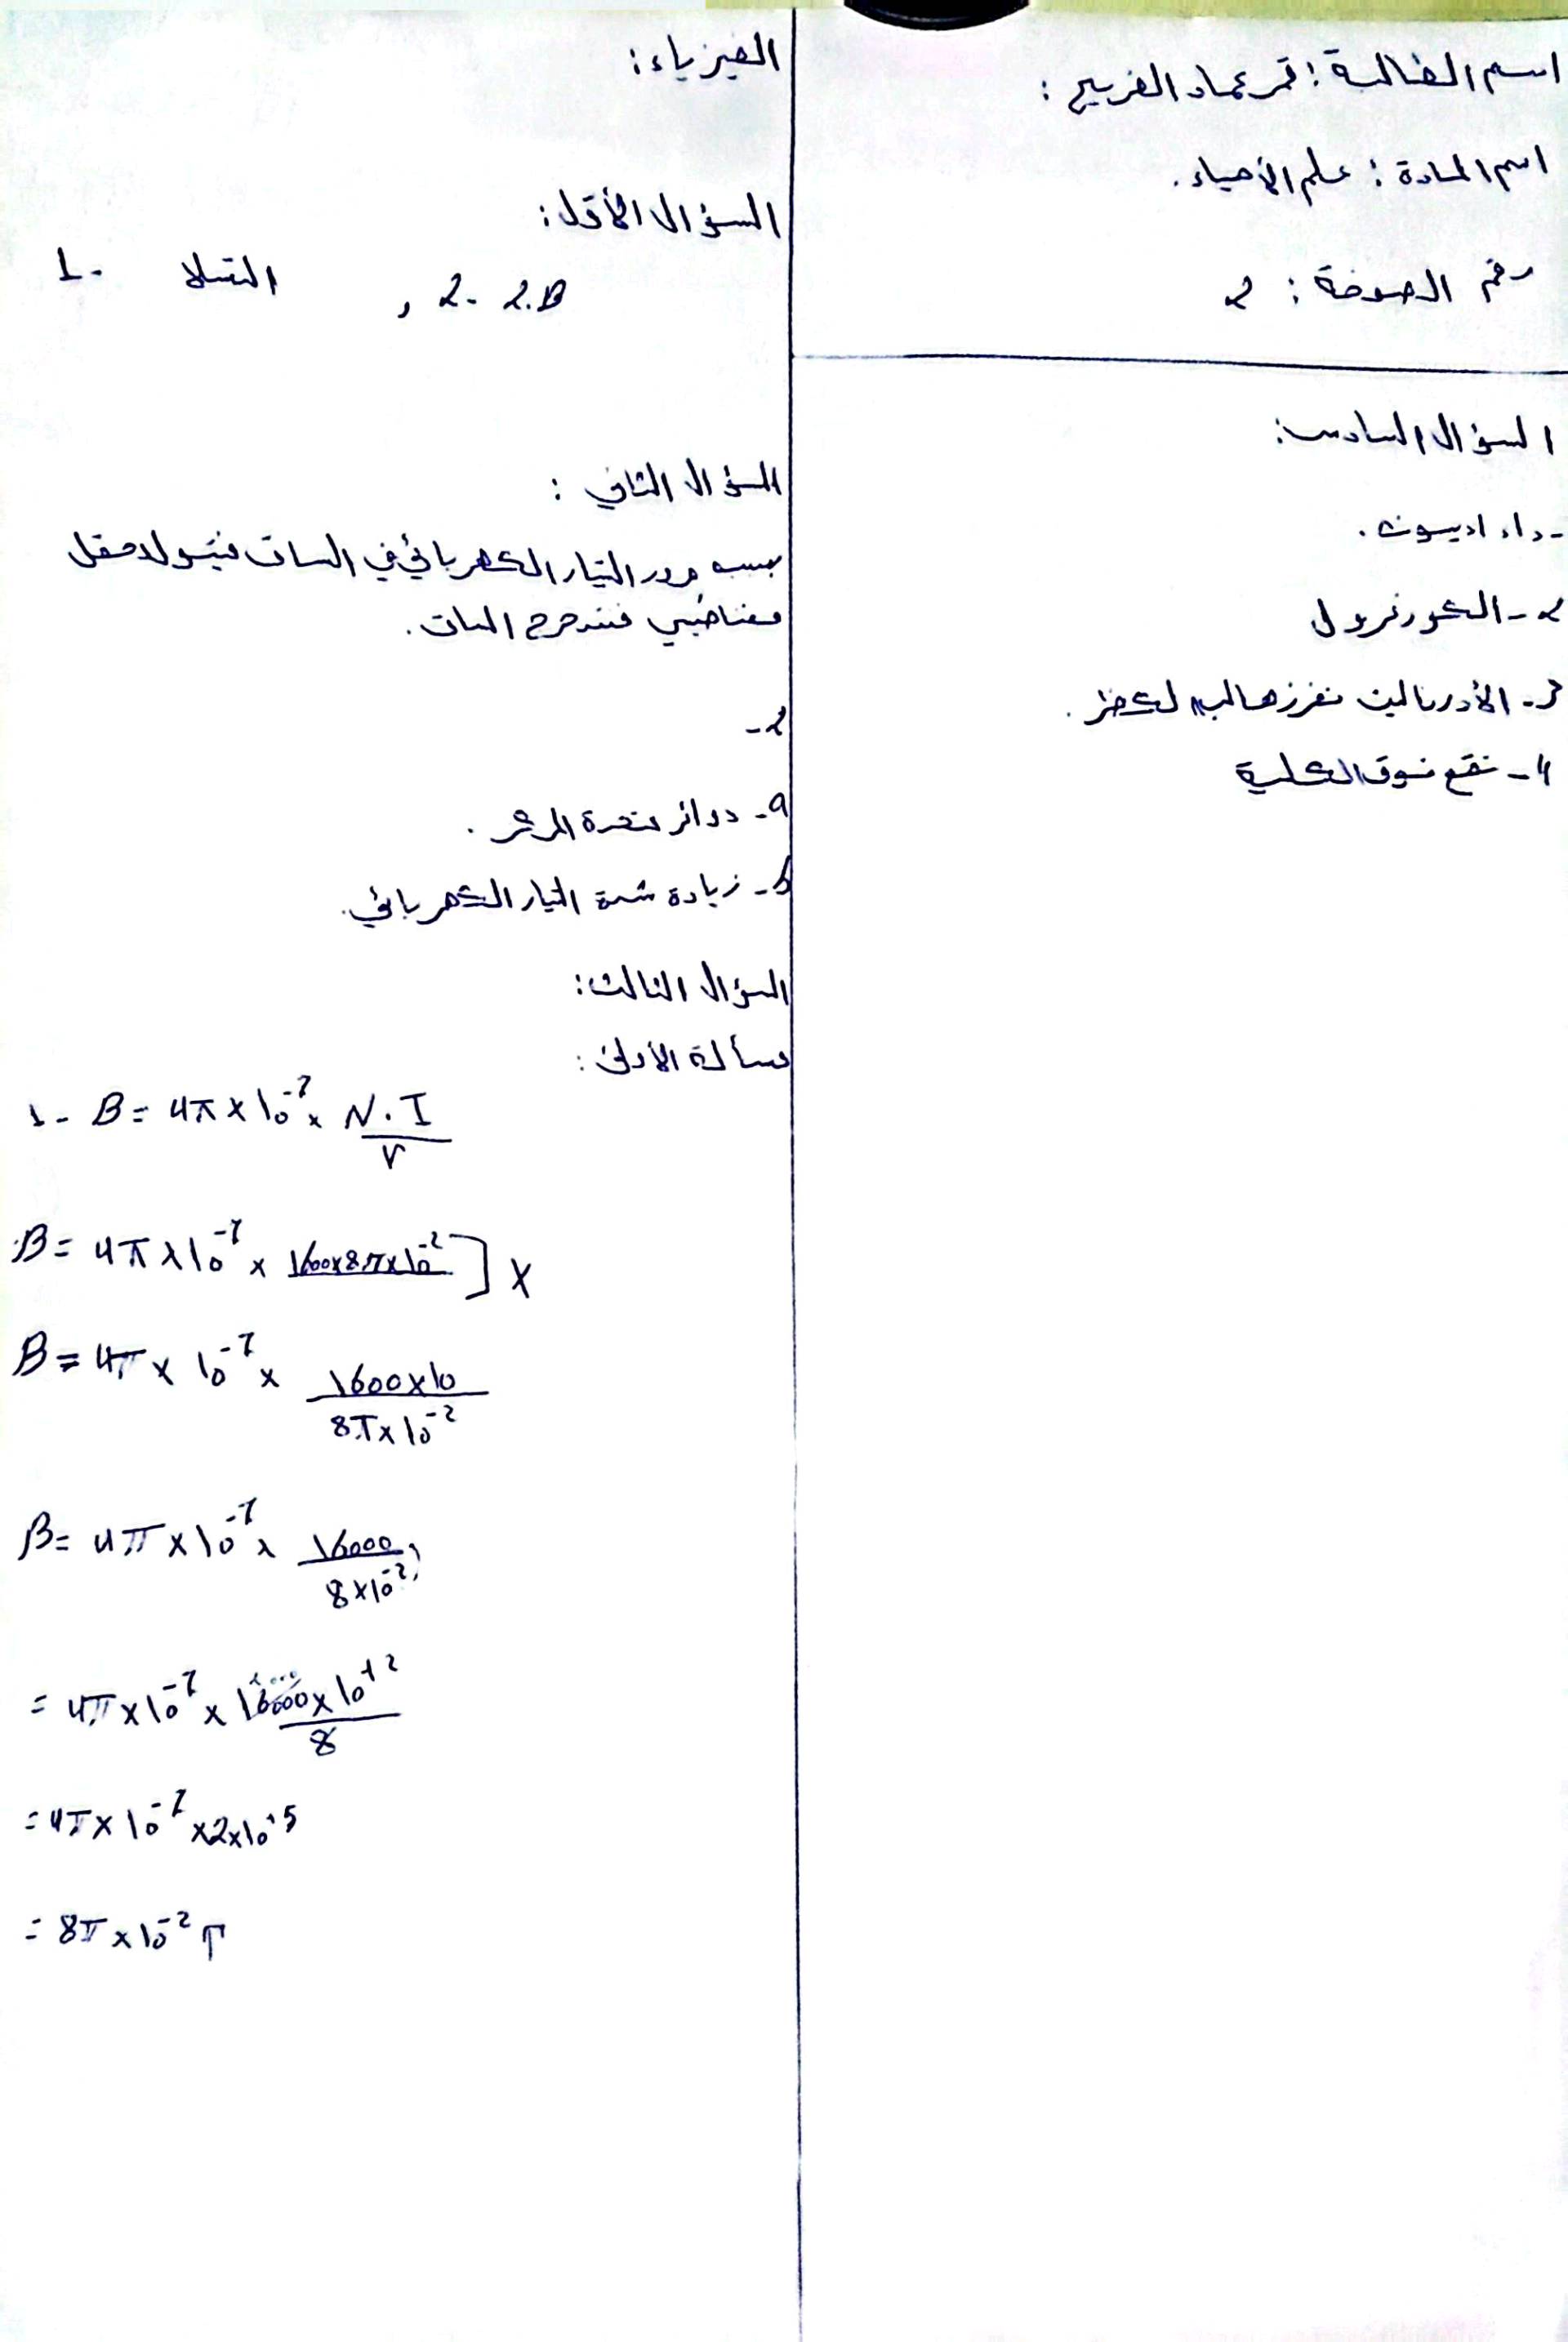 اسم الطالبة: قمر عماد الفريج:
اسم المادة: علم الأحياء.
رقم الصفحة: 2
السؤال السادس:
- داء اديسون.
2- الكورتزول
3- الأدرينالين تفرزها لب الكظر.
4- تقع فوق الكلية
الفيزياء:
السؤال الأول:
1- التسلا , 2- 2.B
السؤال الثاني:
بسبب مرور التيار الكهربائي في الساق فيتولد حقل
مغناطيسي فتتدحرج الساق.
2-
a- دوائر متحدة المركز.
b- زيادة شدة التيار الكهربائي.
السؤال الثالث:
مسألة الأولى:
1- B = 4π × 10^-7 × N.I / r
B = 4π × 10^-7 × 1600×8π×10^-2 ] X
B = 4π × 10^-7 × 1600×10 / 8π×10^-2
B = 4π × 10^-7 × 16000 / 8×10^-2
= 4π × 10^-7 × 16000 × 10^+2 / 8
= 4π × 10^-7 × 2×10^+5
= 8π × 10^-2 T